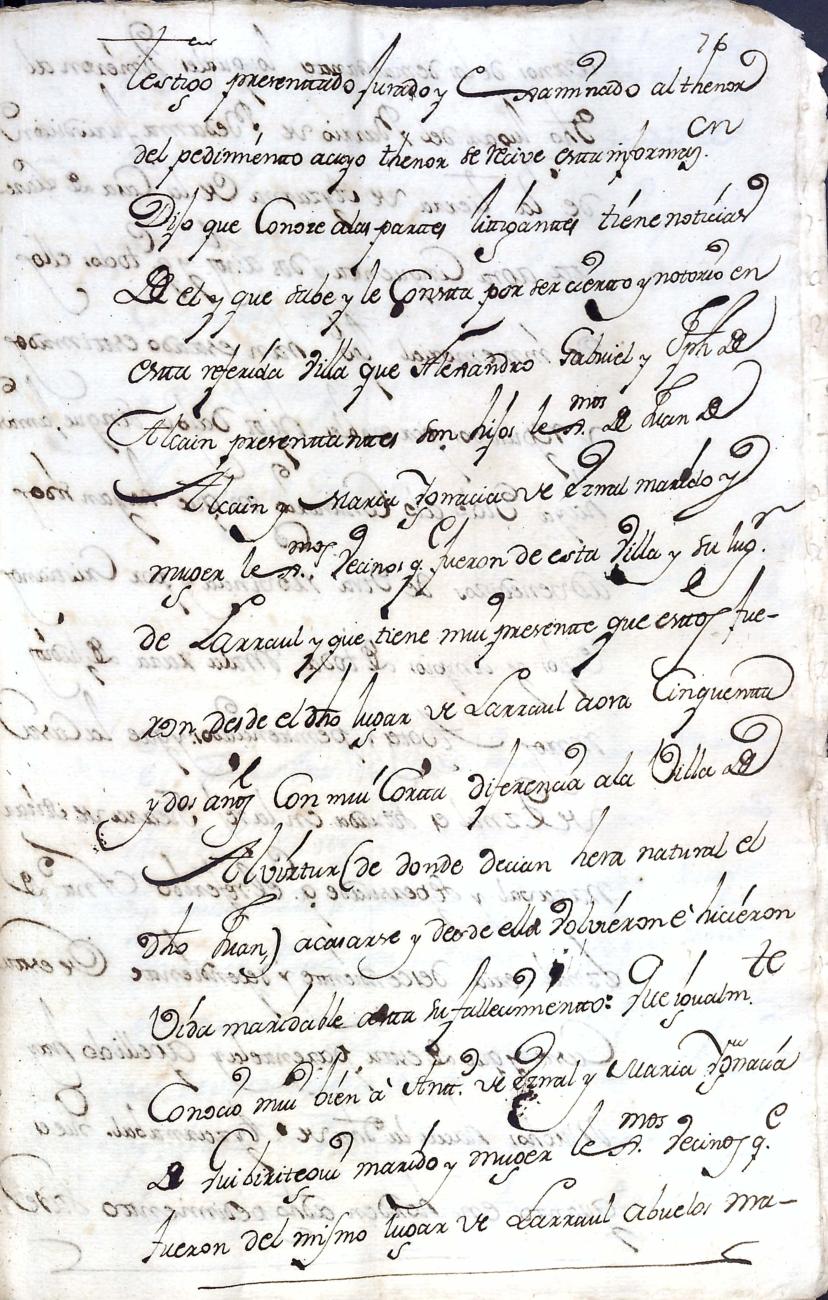 76
testigo presentado jurado y Examinado al thenor
del pedimento acuyo thenor se recive esta informaz.on
Dijo que Conoze alas partes litigantes tiene noticias
de el y que sabe y le Consta por ser cierto y notorio en
esta referida Villa que Alexandro Gabriel y Jph de
Alcain presentantes son hijos lex.mos de Juan de
Alcain y Maria Ygnacia de Eznal marido y
muger lex.mos Vecinos q.e fueron de esta Villa y su lug.r
de Larraul y que tiene mui presente que estos fue-
ron desde el dho lugar de Larraul aora Cinquenta
y dos años Con mui Corta diferencia ala Villa de
Alvistur (de donde decian hera natural el
dho Juan) acasarse y desde ella Volvieron è hicieron
Vida maridable asta su fallecimiento: Que igualm.te
Conocio mui bien à Ant.o de Eznal y Maria Ygnacia
de marido y muger lex.mos Vecinos q.e
fueron del mismo lugar de Larraul abuelos ma-